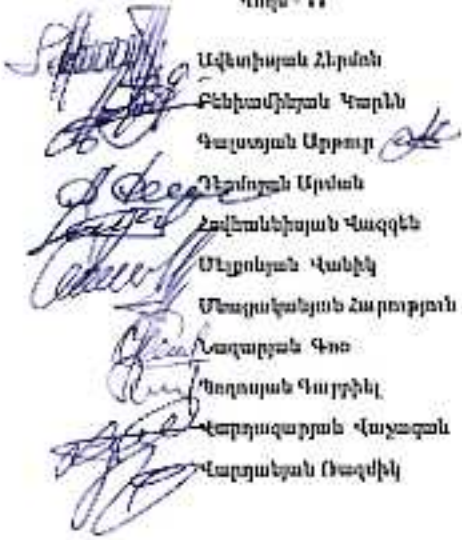 Կողմ - 11
Ավետիսյան Հերմոն
Բենիամինյան Կարեն
Գալստյան Արթուր
Դերմոյան Արման
Հովհաննիսյան Վազգեն
Մելքոնյան Վանիկ
Մնացականյան Հարություն
Նազարյան Գոռ
Պողոսյան Գաբրիել
Վարդազարյան Վաչագան
Վարդանյան Ռազմիկ